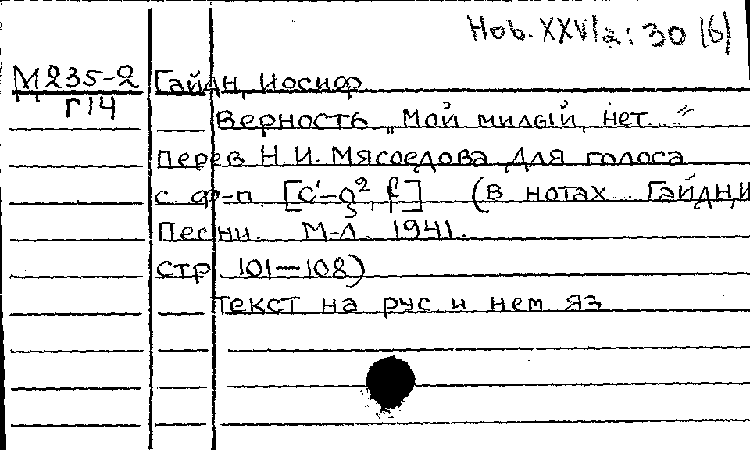 Hob. XXVIa: 30 (6)
М235-2 Гайдн, Иосиф
Г14
Верность „Мой милый, нет..."
перев Н. И. Мясоедова Для голоса
с ф-п. [c'-g², f] (в нотах Гайдн, И
Песни. М-Л. 1941.
стр 101—108)
текст на рус и нем яз